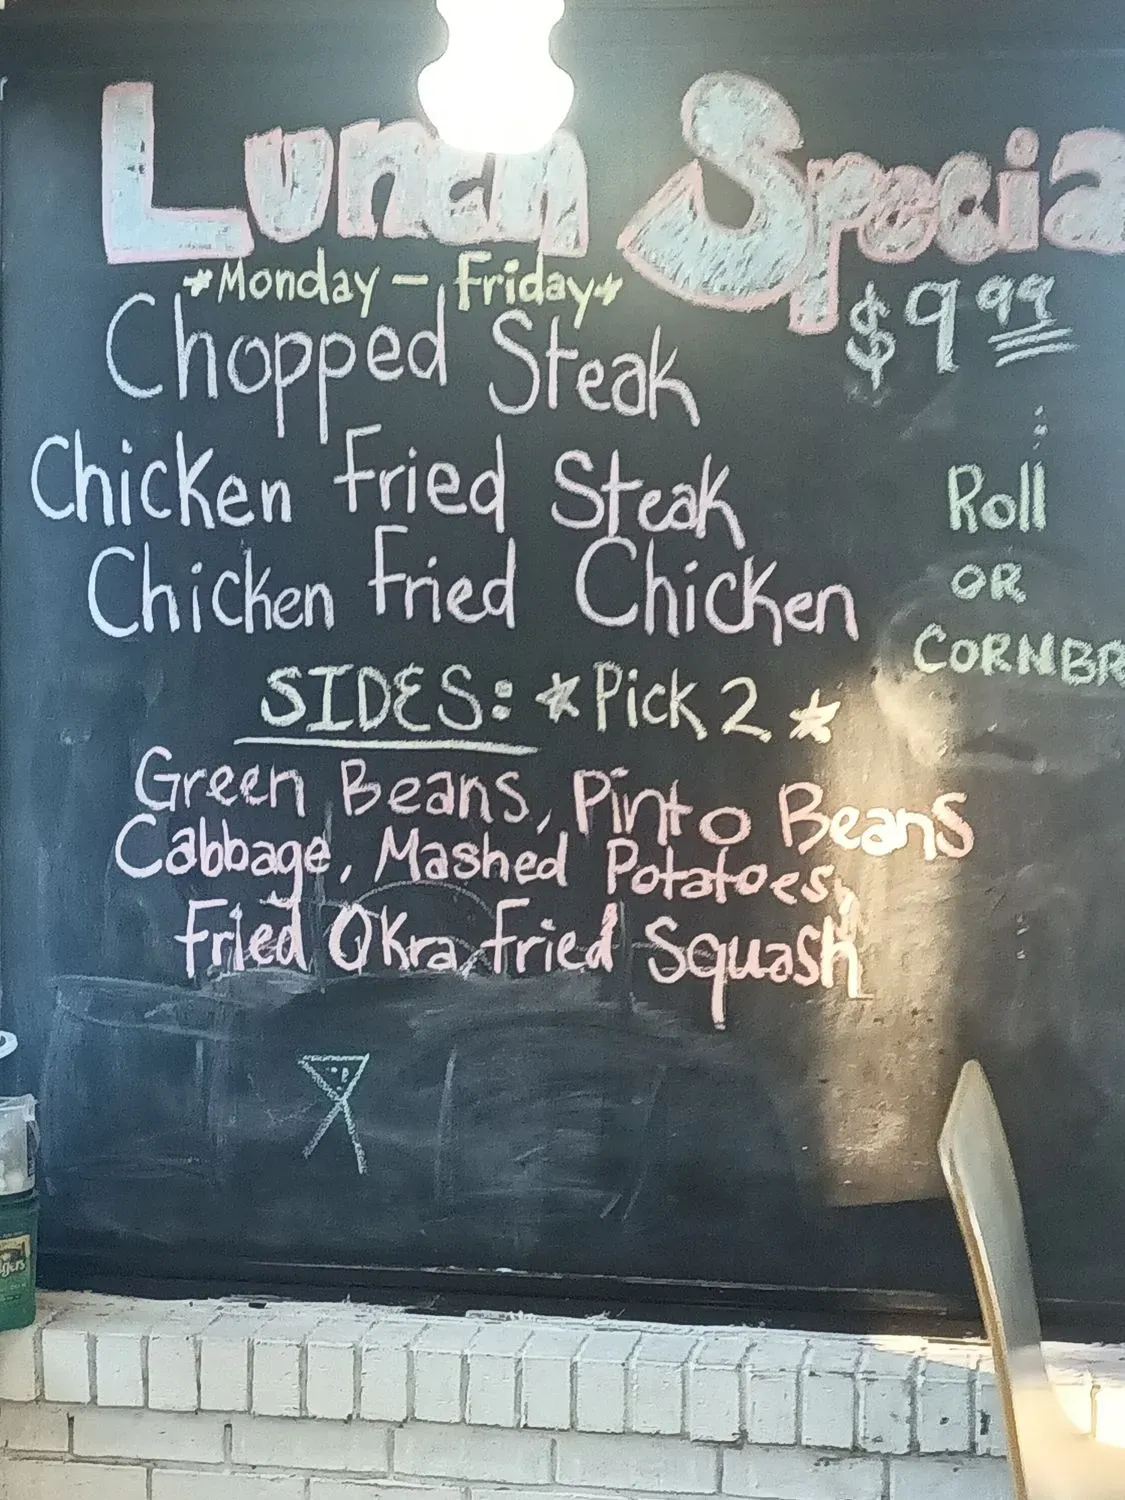 Lunch Specia
*Monday - Friday*
$9.99
Chopped Steak
Chicken Fried Steak
Chicken Fried Chicken
Roll
OR
CORNBR
SIDES: *Pick 2*
Green Beans, Pinto Beans
Cabbage, Mashed Potatoes,
Fried Okra, Fried Squash